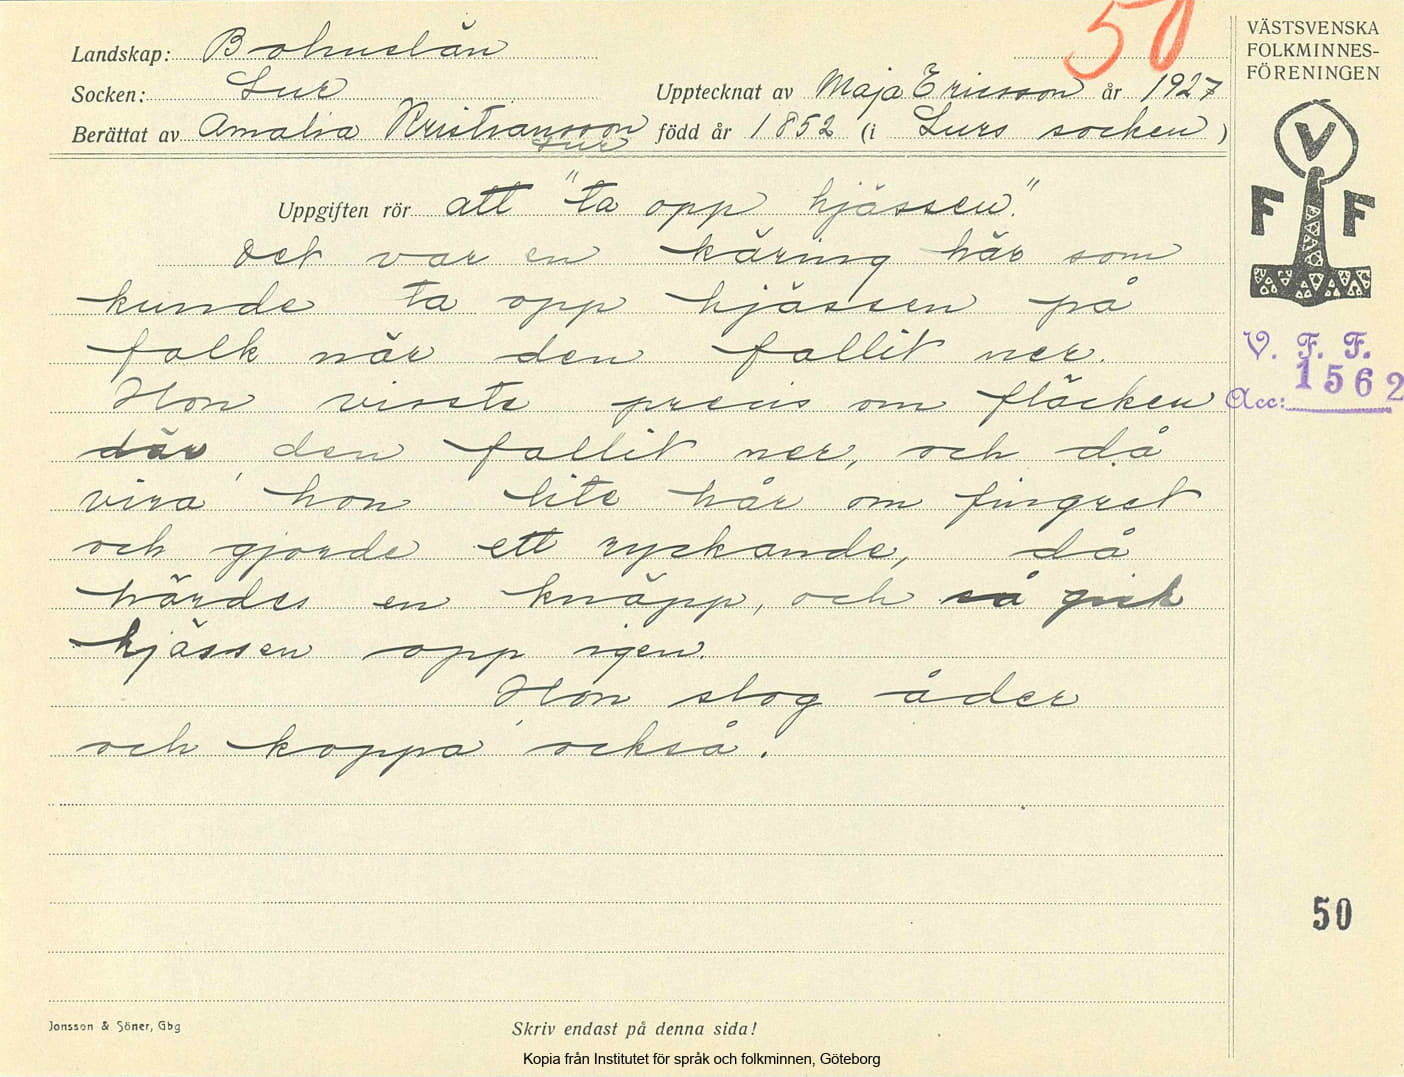 50
VÄSTSVENSKA
FOLKMINNES-
FÖRENINGEN
Landskap: Bohuslän
Socken: Lur
Upptecknat av Maja Ericsson år 1927
Berättat av Amalia Kristiansson född år 1852 (i Lurs socken)
Lur
V
F F
Uppgiften rör att "ta opp hjässen".
Det var en käring här som
kunde ta opp hjässen på
folk när den fallit ner.
Hon visste precis om fläcken
där den fallit ner, och då
vira' hon lite hår om fingret
och gjorde ett ryckande, då
hördes en knäpp, och så gick
hjässen opp igen.
Hon slog åder
och koppa' också.
V. F. F.
1562
Acc:
50
Jonsson & Söner, Gbg
Skriv endast på denna sida!
Kopia från Institutet för språk och folkminnen, Göteborg